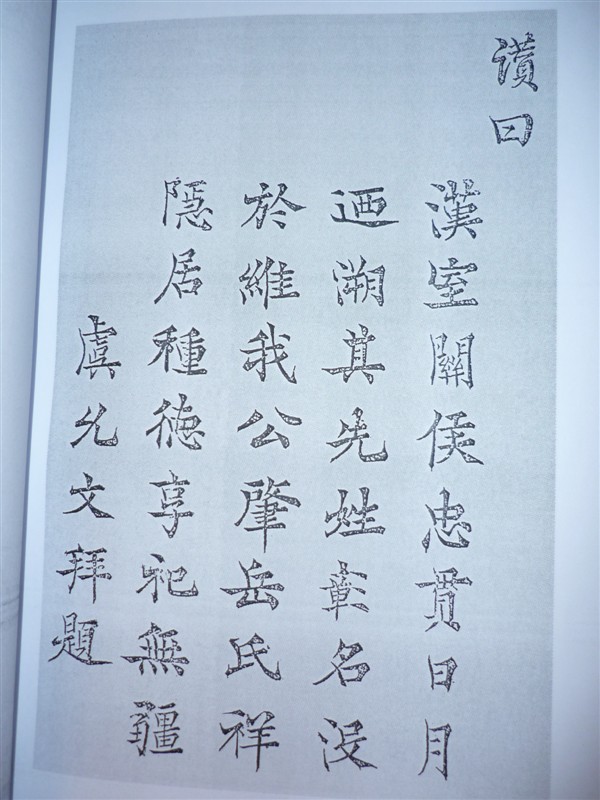 讃曰
漢室關侯忠貫日月
迺溯其先姓章名没
於維我公肇岳氏祥
隠居種徳享祀無疆
虞允文拜題